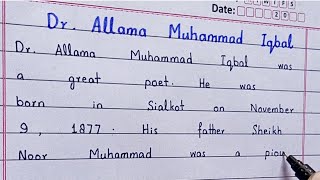 Date:
20
Dr. Allama Muhammad Iqbal
Dr. Allama Muhammad Iqbal was
a great poet. He was
born in Sialkot on November
9, 1877. His father Sheikh
Noor Muhammad was a piou